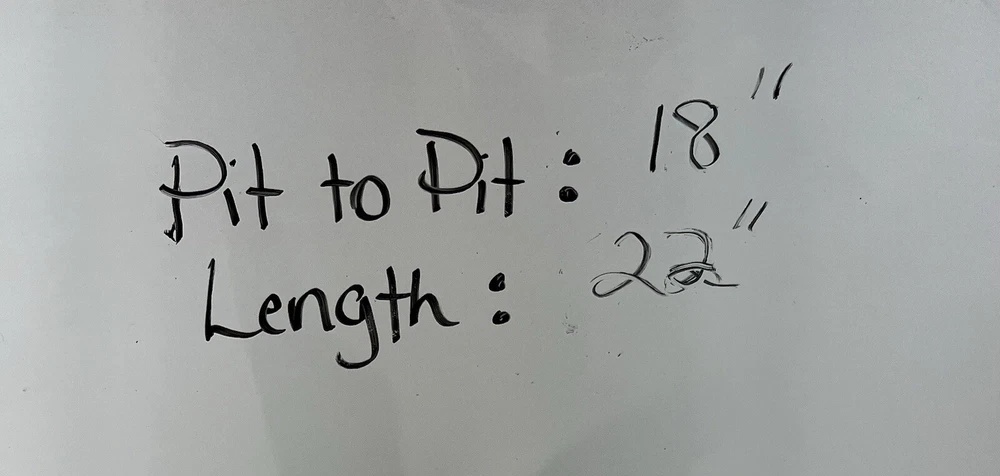 Pit to Pit: 18"
Length: 22"